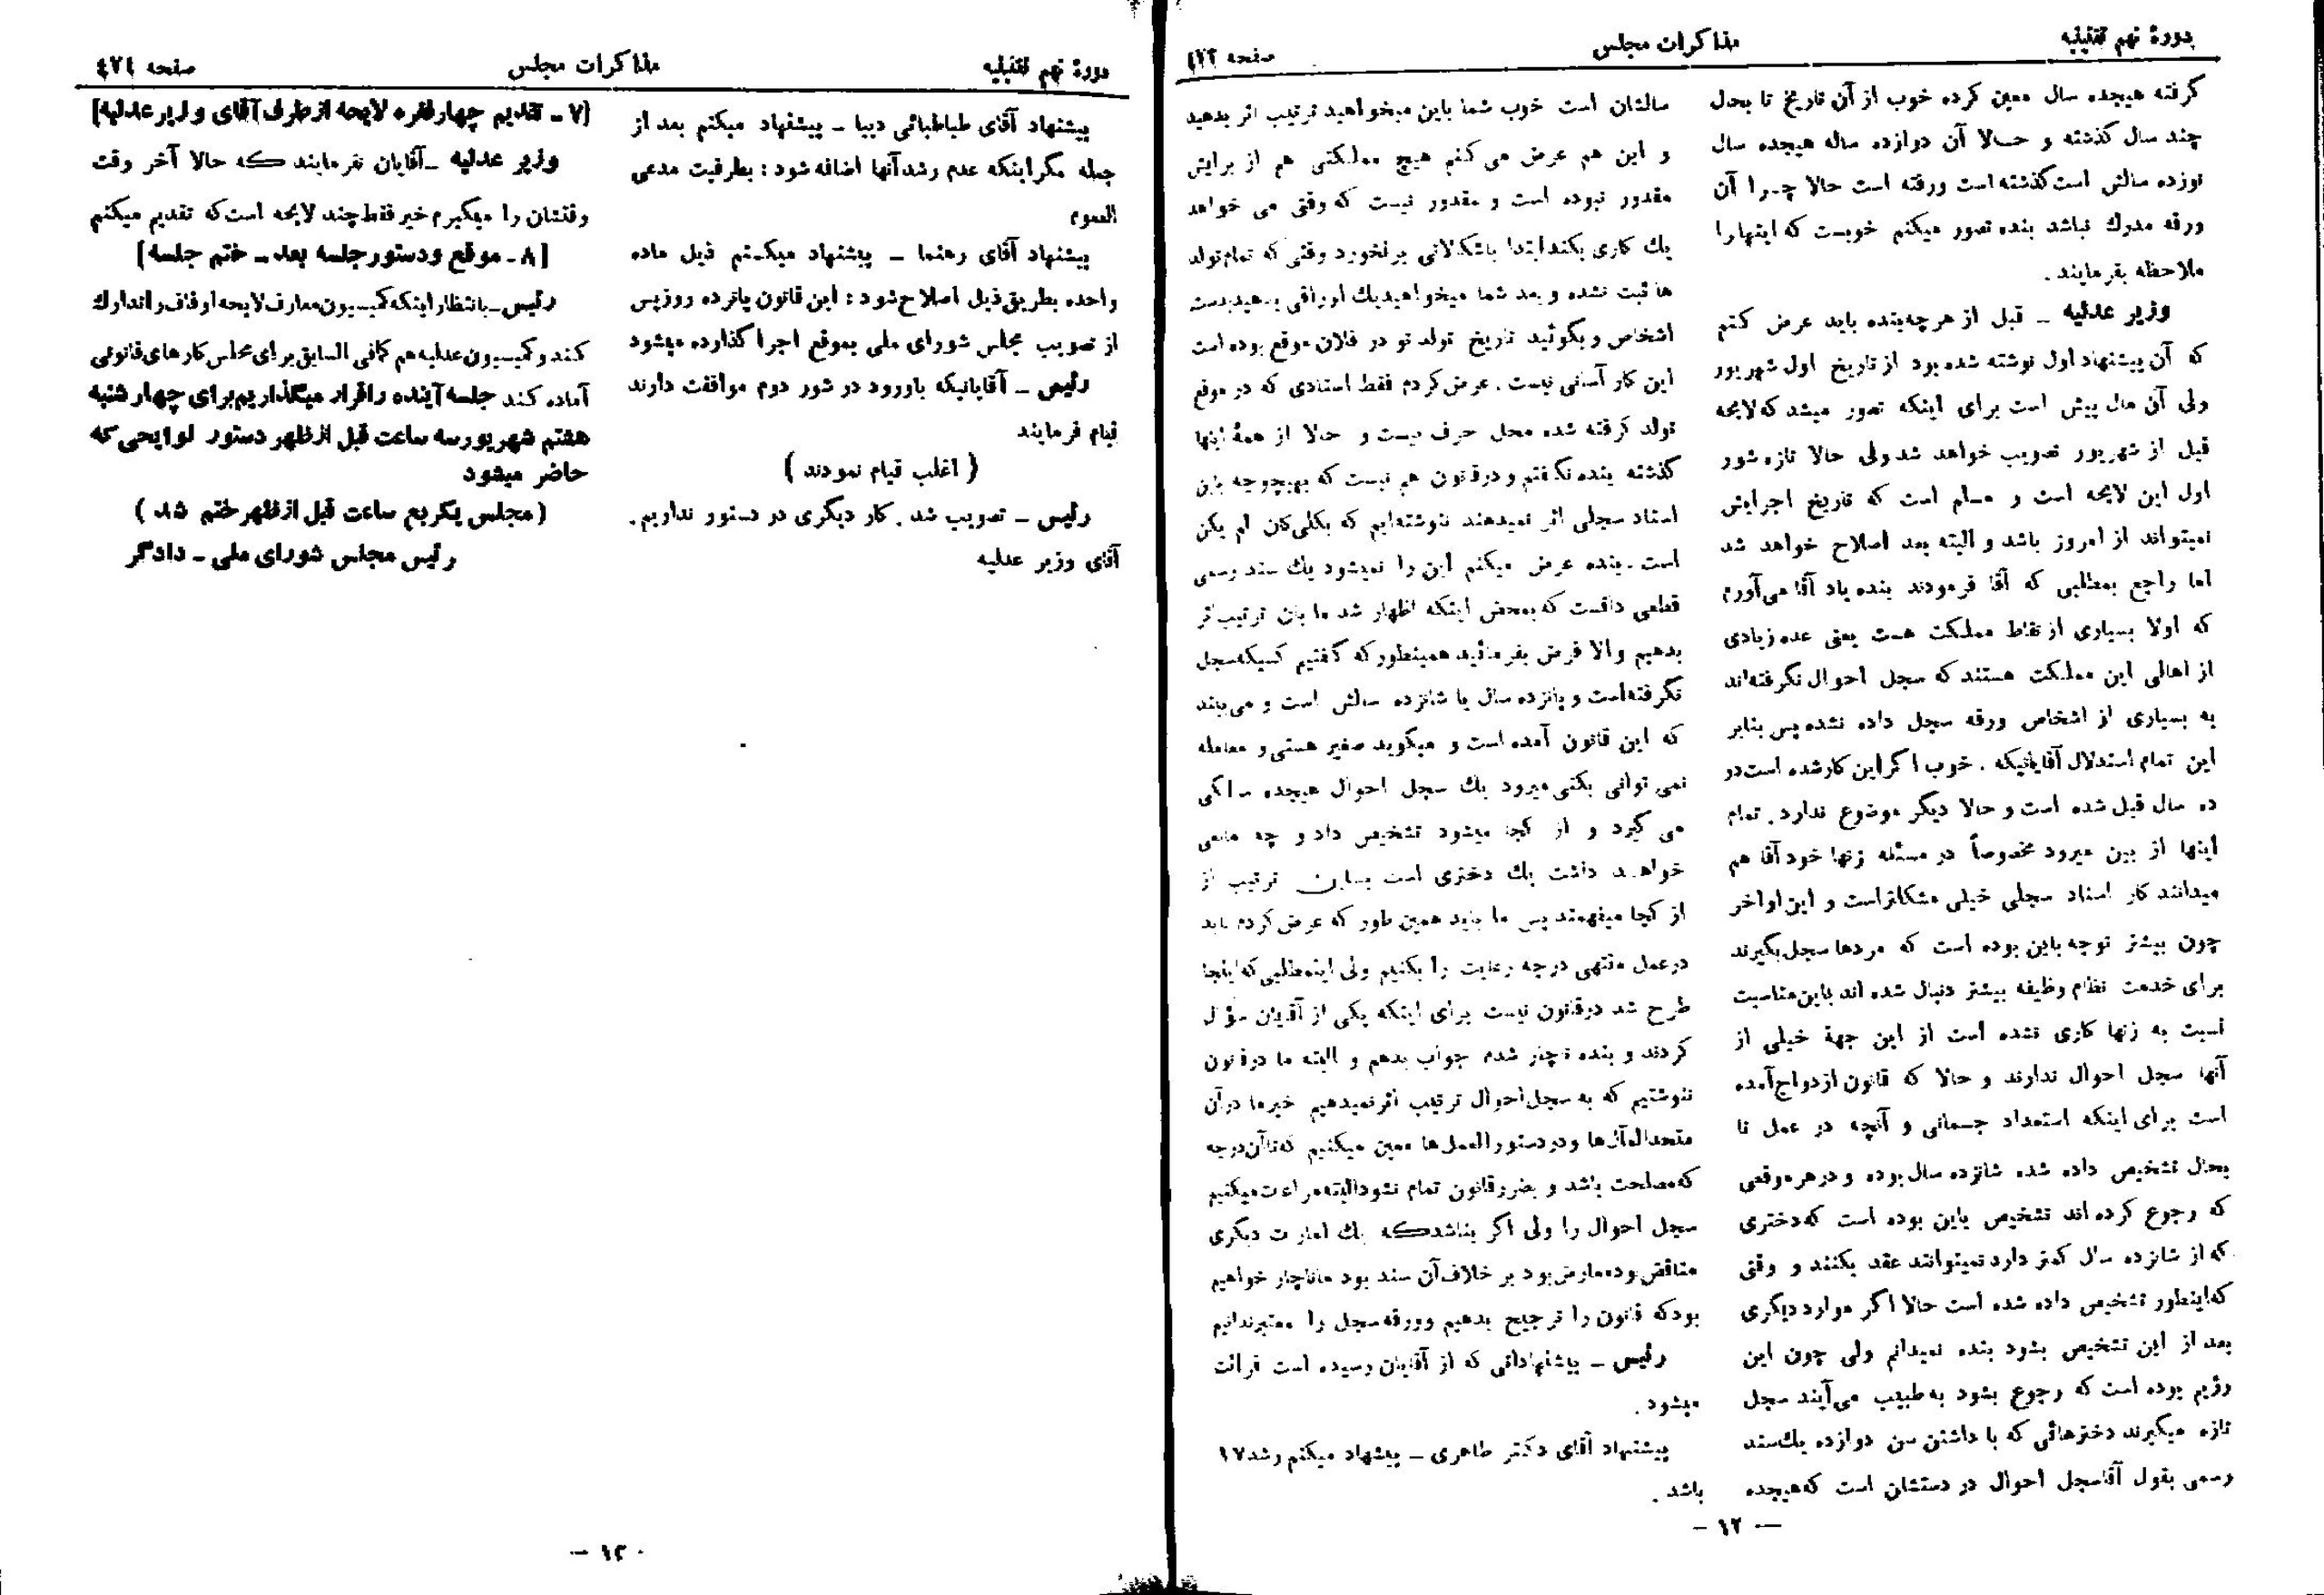 دورهٔ نهم تقنینیه
مذاکرات مجلس
صفحه
گرفته هیجده سال معین کرده خوب از آن تاریخ تا بحال
چند سال گذشته و حالا آن دوازده ساله هیجده سال
نوزده سالش است گذشته است ورقه است حالا چرا آن
ورقه مدرك نباشد بنده تصور میکنم خوبست که اینها را
ملاحظه بفرمایند .
وزیر عدلیه ـ قبل از هر چه بنده باید عرض کنم
که آن پیشنهاد اول نوشته شده بود از تاریخ اول شهریور
ولی آن مال پیش است برای اینکه تصور میشد که لایحه
قبل از شهریور تصویب خواهد شد ولی حالا تازه شور
اول این لایحه است و مسلم است که تاریخ اجرایش
نمیتواند از امروز باشد و البته بعد اصلاح خواهد شد
اما راجع بمطلبی که آقا فرمودند بنده یاد آقا می‌آورم
که اولا بسیاری از نقاط مملکت هست یعنی عده زیادی
از اهالی این مملکت هستند که سجل احوال نگرفته‌اند
به بسیاری از اشخاص ورقه سجل داده نشده پس بنابر
این تمام استدلال آقایانیکه . خوب اگر این کار شده است در
ده سال قبل شده است و حالا دیگر موضوع ندارد . تمام
اینها از بین میرود مخصوصاً در مسئله زنها خود آقا هم
میدانند کار اسناد سجلی خیلی مشکلتر است و این اواخر
چون بیشتر توجه باین بوده است که مردها سجل بگیرند
برای خدمت نظام وظیفه بیشتر دنبال شده اند باین مناسبت
نسبت به زنها کاری نشده است از این جهة خیلی از
آنها سجل احوال ندارند و حالا که قانون ازدواج آمده
است برای اینکه استعداد جسمانی و آنچه در عمل تا
بحال تشخیص داده شده شانزده سال بوده و در هر موقعی
که رجوع کرده اند تشخیص باین بوده است که دختری
که از شانزده سال کمتر دارد نمیتوانند عقد بکنند و وقتی
که اینطور تشخیص داده شده است حالا اگر موارد دیگری
بعد از این تشخیص بشود بنده نمیدانم ولی چون این
رژیم بوده است که رجوع بشود به طبیب می‌آیند سجل
تازه میگیرند دخترهائی که با داشتن سن دوازده یك سند
رسمی بقول آقا سجل احوال در دستشان است که هیجده
سالشان است خوب شما باین میخواهید ترتیب اثر بدهید
و این هم عرض می کنم هیچ مملکتی هم از برایش
مقدور نبوده است و مقدور نیست که وقتی می خواهد
یك کاری بکند ابتدا باشکالاتی برنخورد وقتی که تمام تولد
ها ثبت نشده و بعد شما میخواهید یك اوراقی بدهید بدست
اشخاص و بگوئید تاریخ تولد تو در فلان موقع بوده است
این کار آسانی نیست . عرض کردم فقط اسنادی که در موقع
تولد گرفته شده محل حرف نیست و حالا از همهٔ اینها
گذشته بنده نگفتم و در قانون هم نیست که بهیچوجه باین
اسناد سجلی اثر نمیدهند ننوشته‌ایم که بکلی کان لم یکن
است . بنده عرض میکنم این را نمیشود یك سند رسمی
قطعی دانست که بمحض اینکه اظهار شد ما بآن ترتیب اثر
بدهیم والا فرض بفرمائید همینطور که گفتیم کسیکه سجل
نگرفته است و پانزده سال یا شانزده سالش است و می‌بیند
که این قانون آمده است و میگوید صغیر هستی و معامله
نمی توانی بکنی میرود یك سجل احوال هیجده سالگی
می گیرد و از کجا میشود تشخیص داد و چه مانعی
خواهند داشت یك دختری است باین ترتیب از
از کجا میفهمند پس ما باید همین طور که عرض کردم باید
در عمل منتهی درجه رعایت را بکنیم ولی این مطلبی که اینجا
طرح شد در قانون نیست برای اینکه یکی از آقایان سؤال
کردند و بنده ناچار شدم جواب بدهم و البته ما در قانون
ننوشتیم که به سجل احوال ترتیب اثر نمیدهیم خیر ما در آن
متحدالمآل‌ها و در دستورالعمل‌ها معین میکنیم که تا آن درجه
که مصلحت باشد و بضرر قانون تمام نشود البته مراعات میکنیم
سجل احوال را ولی اگر بنا شد که یك امارات دیگری
متناقض بوده معارض بود بر خلاف آن سند بود ما ناچار خواهیم
بود که قانون را ترجیح بدهیم و ورقه سجل را معتبر ندانیم
رئیس ـ پیشنهاداتی که از آقایان رسیده است قرائت
میشود .
پیشنهاد آقای دکتر طاهری ـ پیشنهاد میکنم رشد ۱۷
باشد .
— ۱۲ –
دورهٔ نهم تقنینیه
مذاکرات مجلس
صفحه ٤٧٤
پیشنهاد آقای طباطبائی دیبا ـ پیشنهاد میکنم بعد از
جمله مگر اینکه عدم رشد آنها اضافه شود : بطرفیت مدعی
العموم
پیشنهاد آقای رهنما ـ پیشنهاد میکنم ذیل ماده
واحده بطریق ذیل اصلاح شود : این قانون پانزده روز پس
از تصویب مجلس شورای ملی بموقع اجرا گذارده میشود
رئیس ـ آقایانیکه باورود در شور دوم موافقت دارند
قیام فرمایند
( اغلب قیام نمودند )
رئیس ـ تصویب شد . کار دیگری در دستور نداریم .
آقای وزیر عدلیه
[۷ ـ تقدیم چهار فقره لایحه از طرف آقای وزیر عدلیه]
وزیر عدلیه ـ آقایان نفرمایند که حالا آخر وقت
وقتشان را میگیرم خیر فقط چند لایحه است که تقدیم میکنم
[ ۸ ـ موقع و دستور جلسه بعد ـ ختم جلسه ]
رئیس ـ بانتظار اینکه کمیسیون معارف لایحه اوقاف را تدارك
کند و کمیسیون عدلیه هم کمافی السابق برای مجلس کارهای قانونی
آماده کند جلسه آینده را قرار میگذاریم برای چهارشنبه
هفتم شهریور سه ساعت قبل از ظهر دستور لوایحی که
حاضر میشود
( مجلس یکربع ساعت قبل از ظهر ختم شد )
رئیس مجلس شورای ملی ـ دادگر
— ۱۳ ۰